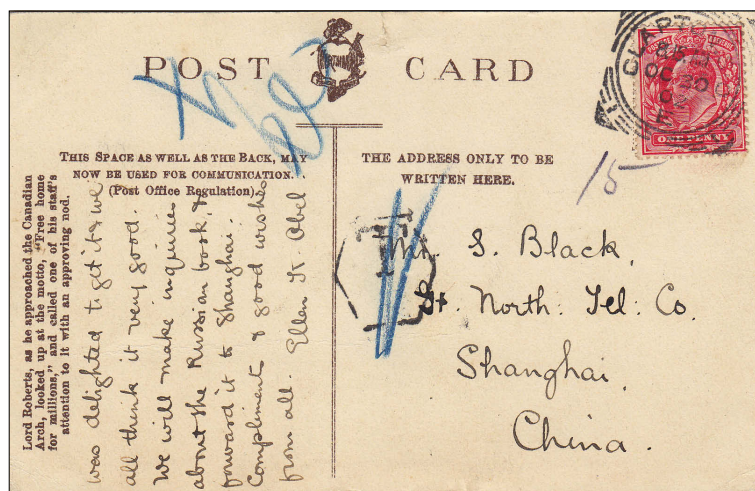 POST CARD
THIS SPACE AS WELL AS THE BACK, MAY
NOW BE USED FOR COMMUNICATION.
(Post Office Regulation).
THE ADDRESS ONLY TO BE
WRITTEN HERE.
Lord Roberts, as he approached the Canadian
Arch, looked up at the motto, "Free home
for millions," and called one of his staff's
attention to it with an approving nod.
was delighted to get it & we
all think it very good.
We will make inquiries
about the Russian book, &
forward it to Shanghai.
Compliments & good wishes
from all. Ellen K. Abel
POSTAGE & REVENUE
ONE PENNY
CLAPTON
OC 30
02
15
T
Mr. S. Black,
Gt. North: Tel: Co.
Shanghai,
China.